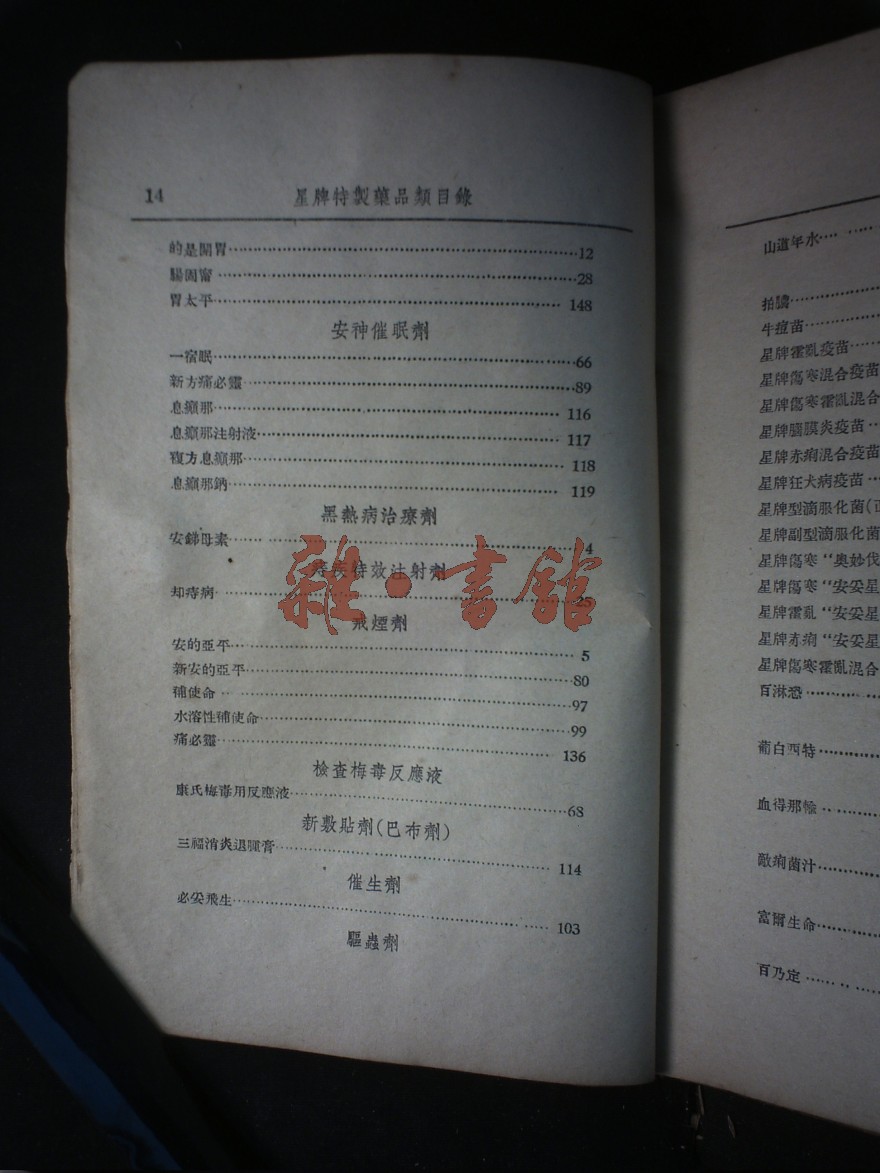 14 星牌特製藥品類目錄
的是開胃 12
腸固甯 28
胃太平 148
安神催眠劑
一宿眠 66
新方痛必靈 89
息癲那 116
息癲那注射液 117
複方息癲那 118
息癲那鈉 119
黑熱病治療劑
安銻母素 4
痔疾特效注射劑
知痔病 25
戒煙劑
安的亞平 5
新安的亞平 80
補使命 97
水溶性補使命 99
痛必靈 136
檢查梅毒反應液
康氏梅毒用反應液 68
新敷貼劑(巴布劑)
三福消炎退腫膏 114
催生劑
必妥飛生 103
驅蟲劑
雜·書館
山道年水
拍醣
牛痘苗
星牌霍亂疫苗
星牌傷寒混合疫苗
星牌傷寒霍亂混合
星牌腦膜炎疫苗
星牌赤痢混合疫苗
星牌狂犬病疫苗
星牌型滴服化菌(正
星牌副型滴服化菌
星牌傷寒“奧妙伐
星牌傷寒“安妥星
星牌霍亂“安妥星
星牌赤痢“安妥星
星牌傷寒霍亂混合
百淋恐
葡白西特
血得那
敵痢菌汁
富爾生命
百乃定